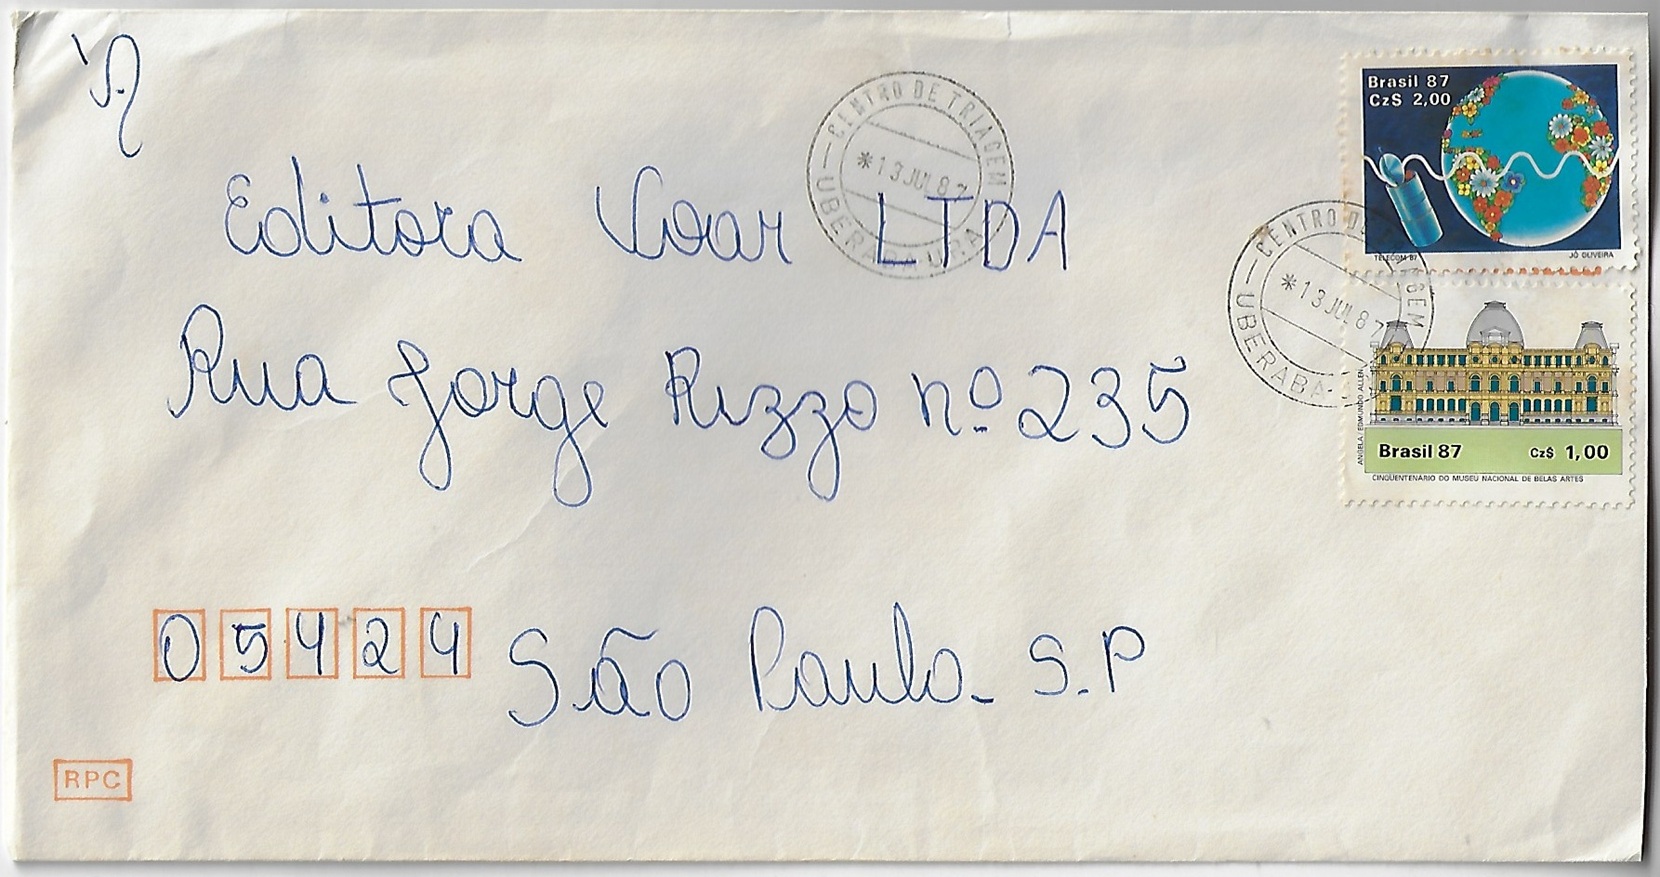 'A
Editora Voar LTDA
Rua Jorge Rizzo nº 235
05424 São Paulo - S.P
RPC
CENTRO DE TRIAGEM
*13 JUL 87
UBERABA URA
CENTRO DE TRIAGEM
*13 JUL 87
UBERABA
Brasil 87
Cz$ 2,00
TELECOM 87 JÔ OLIVEIRA
ANGELA/EDMUNDO ALLEN
Brasil 87 Cz$ 1,00
CINQÜENTENÁRIO DO MUSEU NACIONAL DE BELAS ARTES